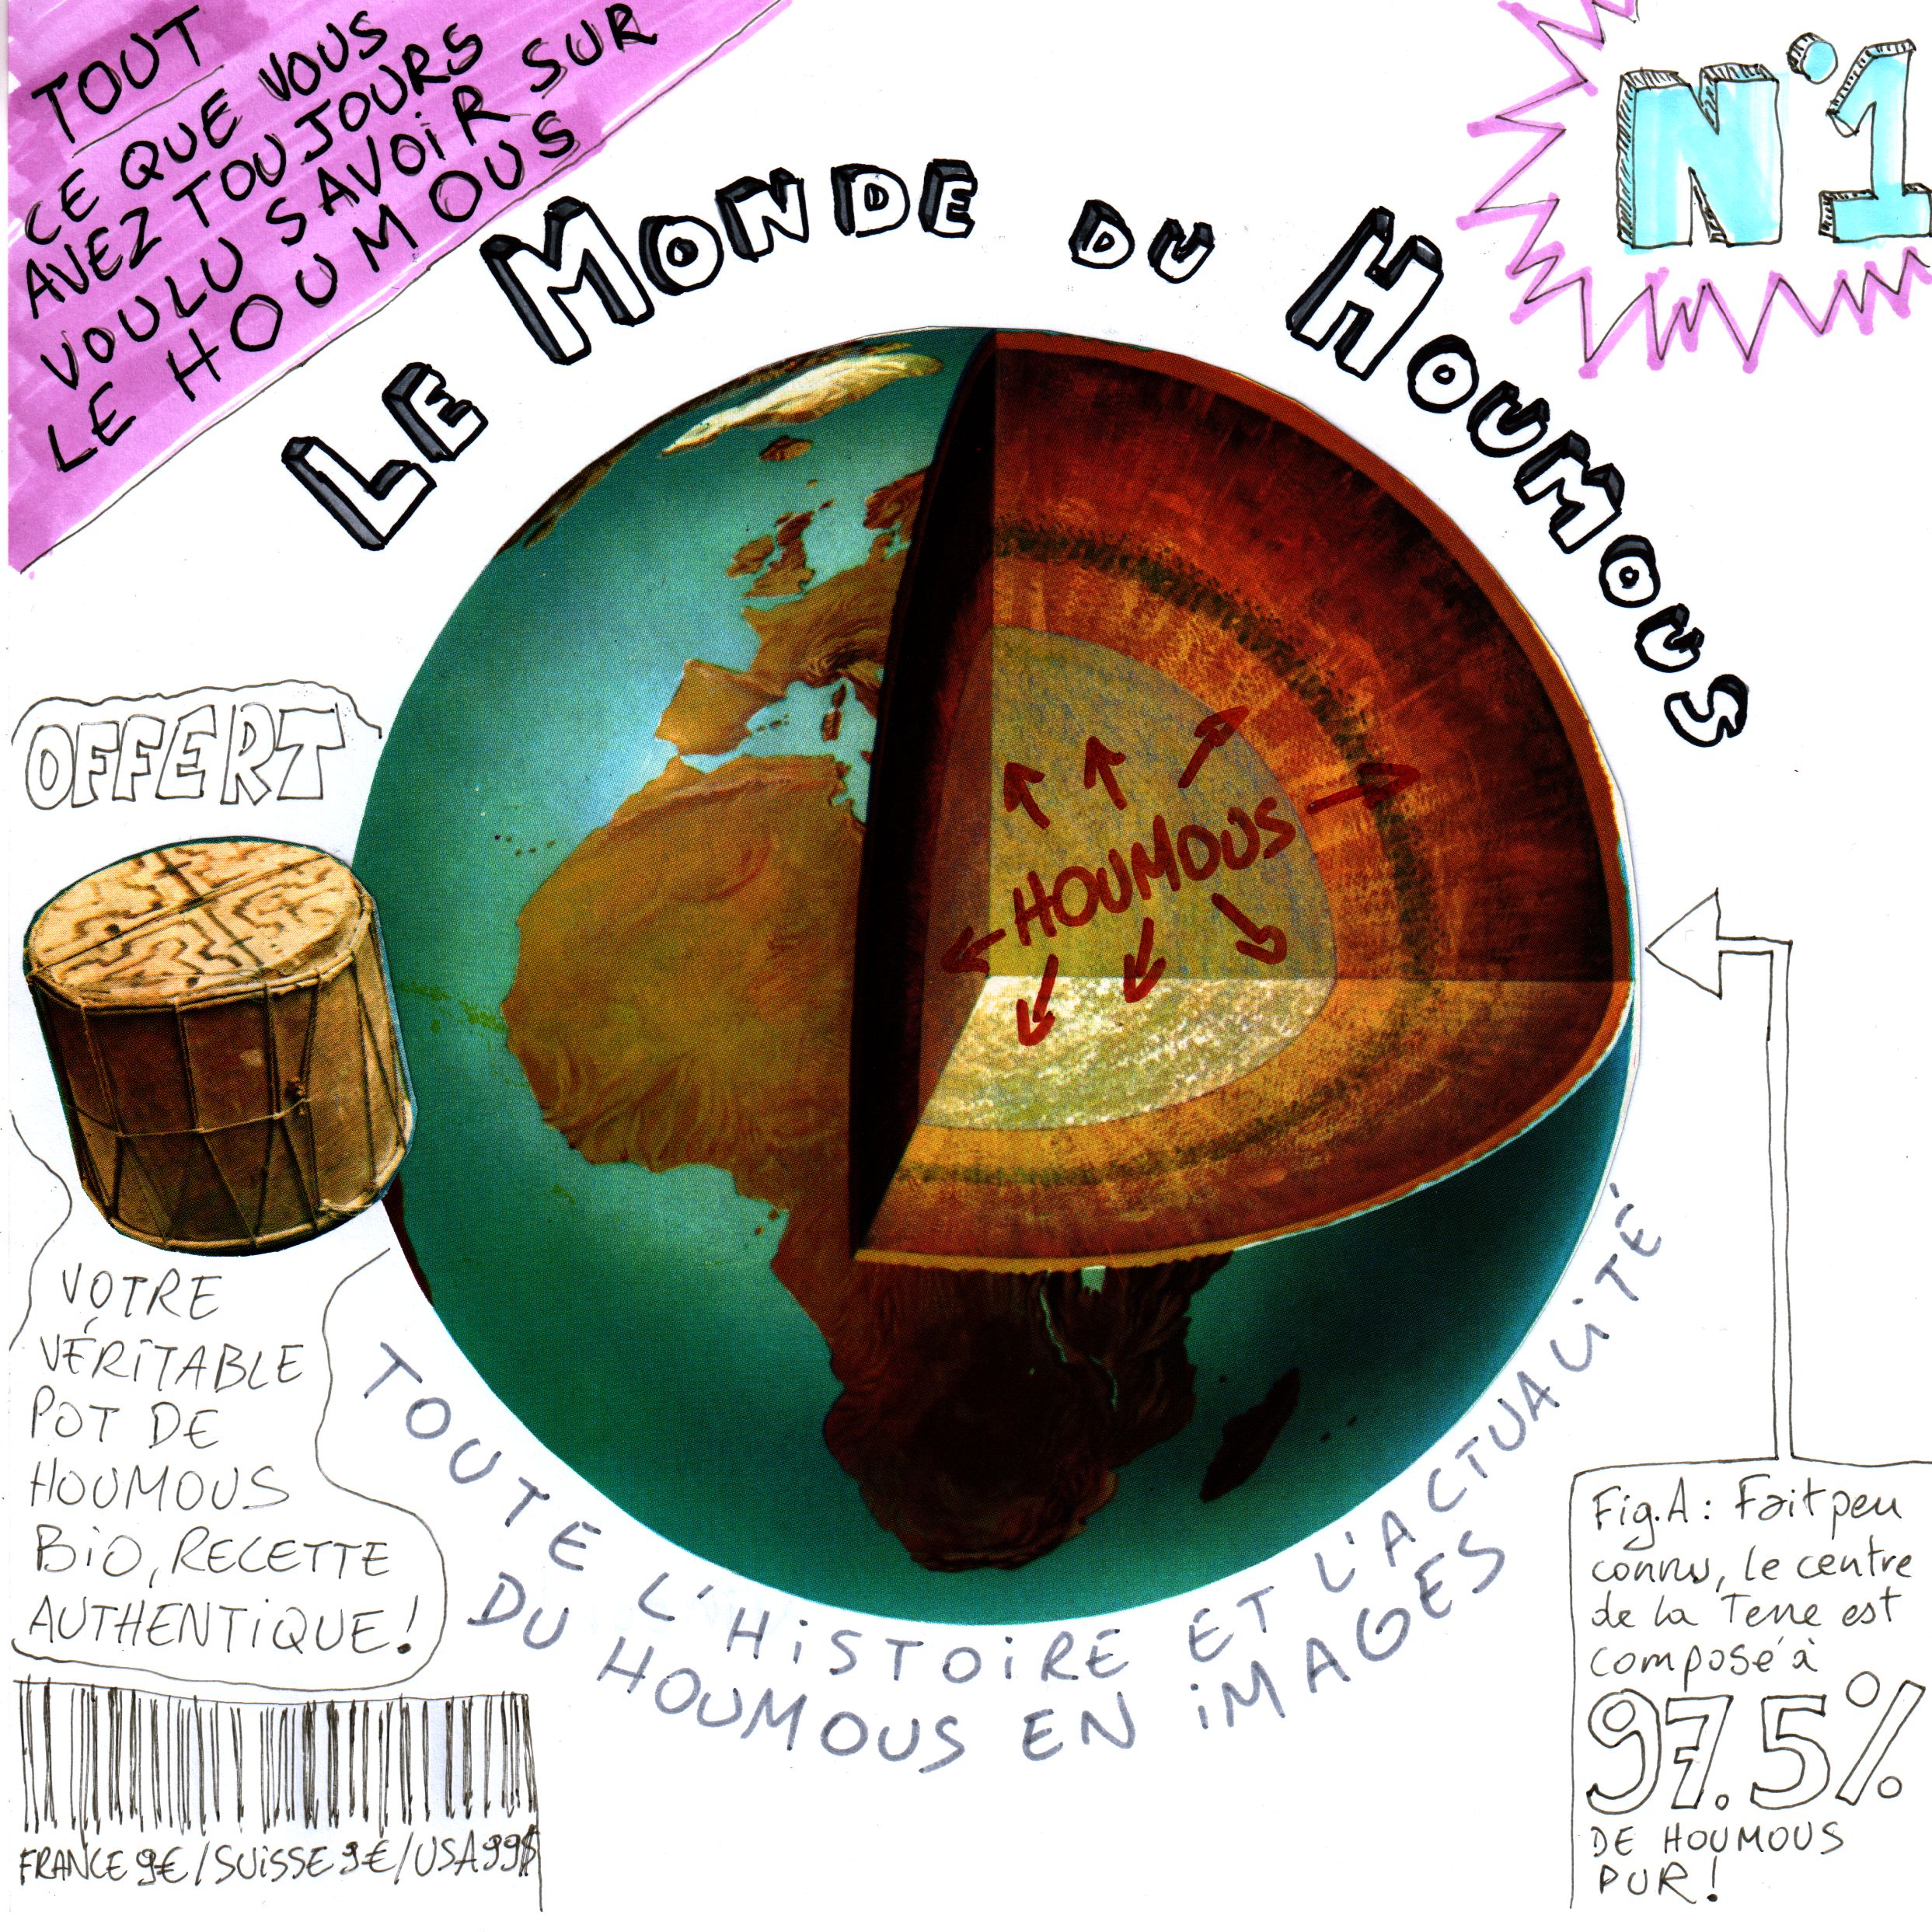 TOUT
CE QUE VOUS
AVEZ TOUJOURS
VOULU SAVOIR SUR
LE HOUMOUS
N°1
LE MONDE DU HOUMOUS
OFFERT
HOUMOUS
VOTRE
VÉRITABLE
POT DE
HOUMOUS
BIO, RECETTE
AUTHENTIQUE!
TOUTE L'HISTOIRE ET L'ACTUALITÉ
DU HOUMOUS EN IMAGES
Fig.A: Fait peu
connu, le centre
de la Terre est
composé à
97.5%
DE HOUMOUS
PUR!
FRANCE 9€/SUISSE 9€/USA 99$